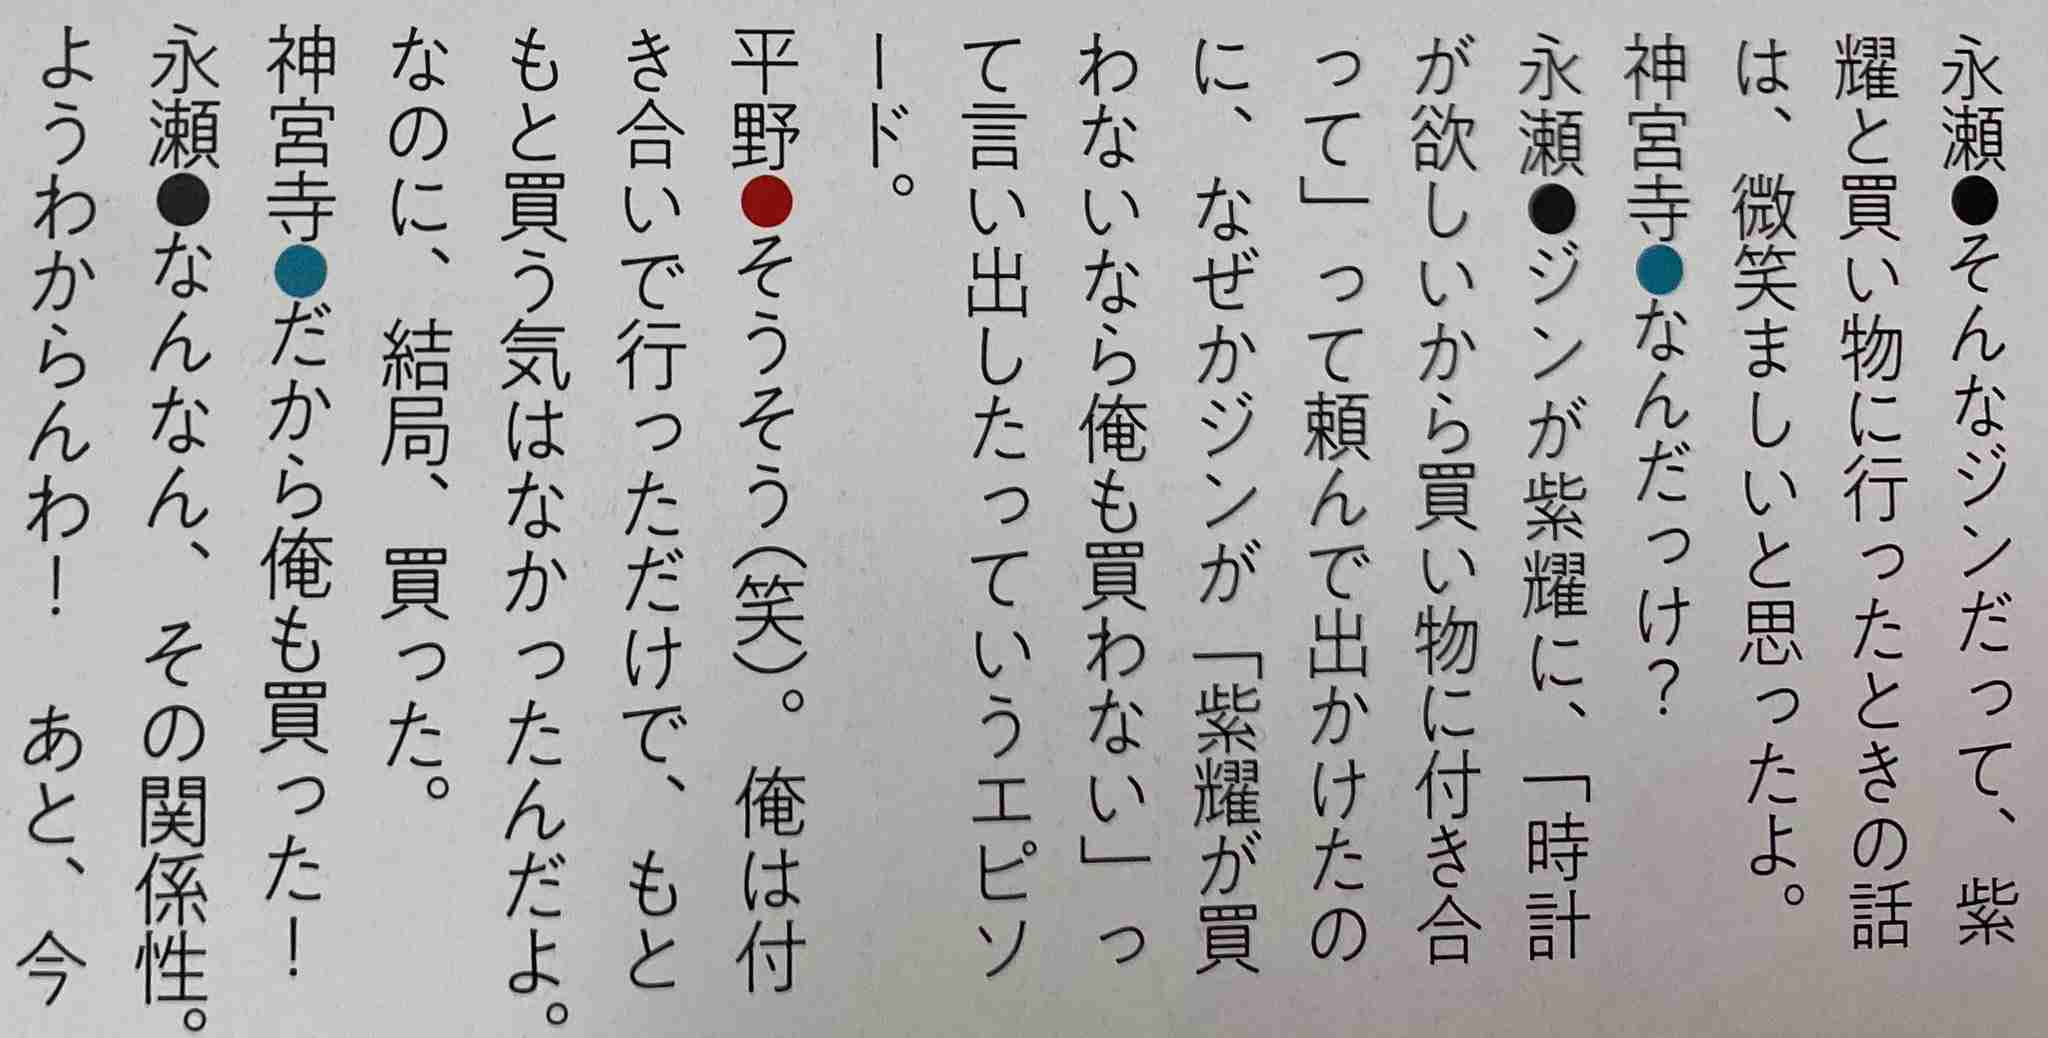 永瀬●そんなジンだって、紫
耀と買い物に行ったときの話
は、微笑ましいと思ったよ。
神宮寺●なんだっけ？
永瀬●ジンが紫耀に、「時計
が欲しいから買い物に付き合
って」って頼んで出かけたの
に、なぜかジンが「紫耀が買
わないなら俺も買わない」っ
て言い出したっていうエピソ
ード。
平野●そうそう（笑）。俺は付
き合いで行っただけで、もと
もと買う気はなかったんだよ。
なのに、結局、買った。
神宮寺●だから俺も買った！
永瀬●なんなん、その関係性。
ようわからんわ！　あと、今